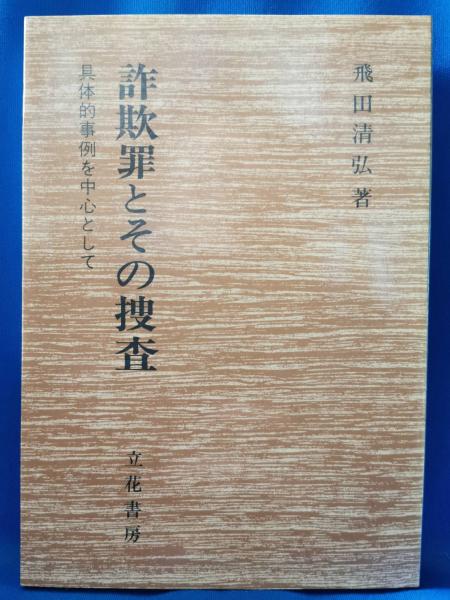 飛田清弘著
詐欺罪とその捜査
具体的事例を中心として
立花書房